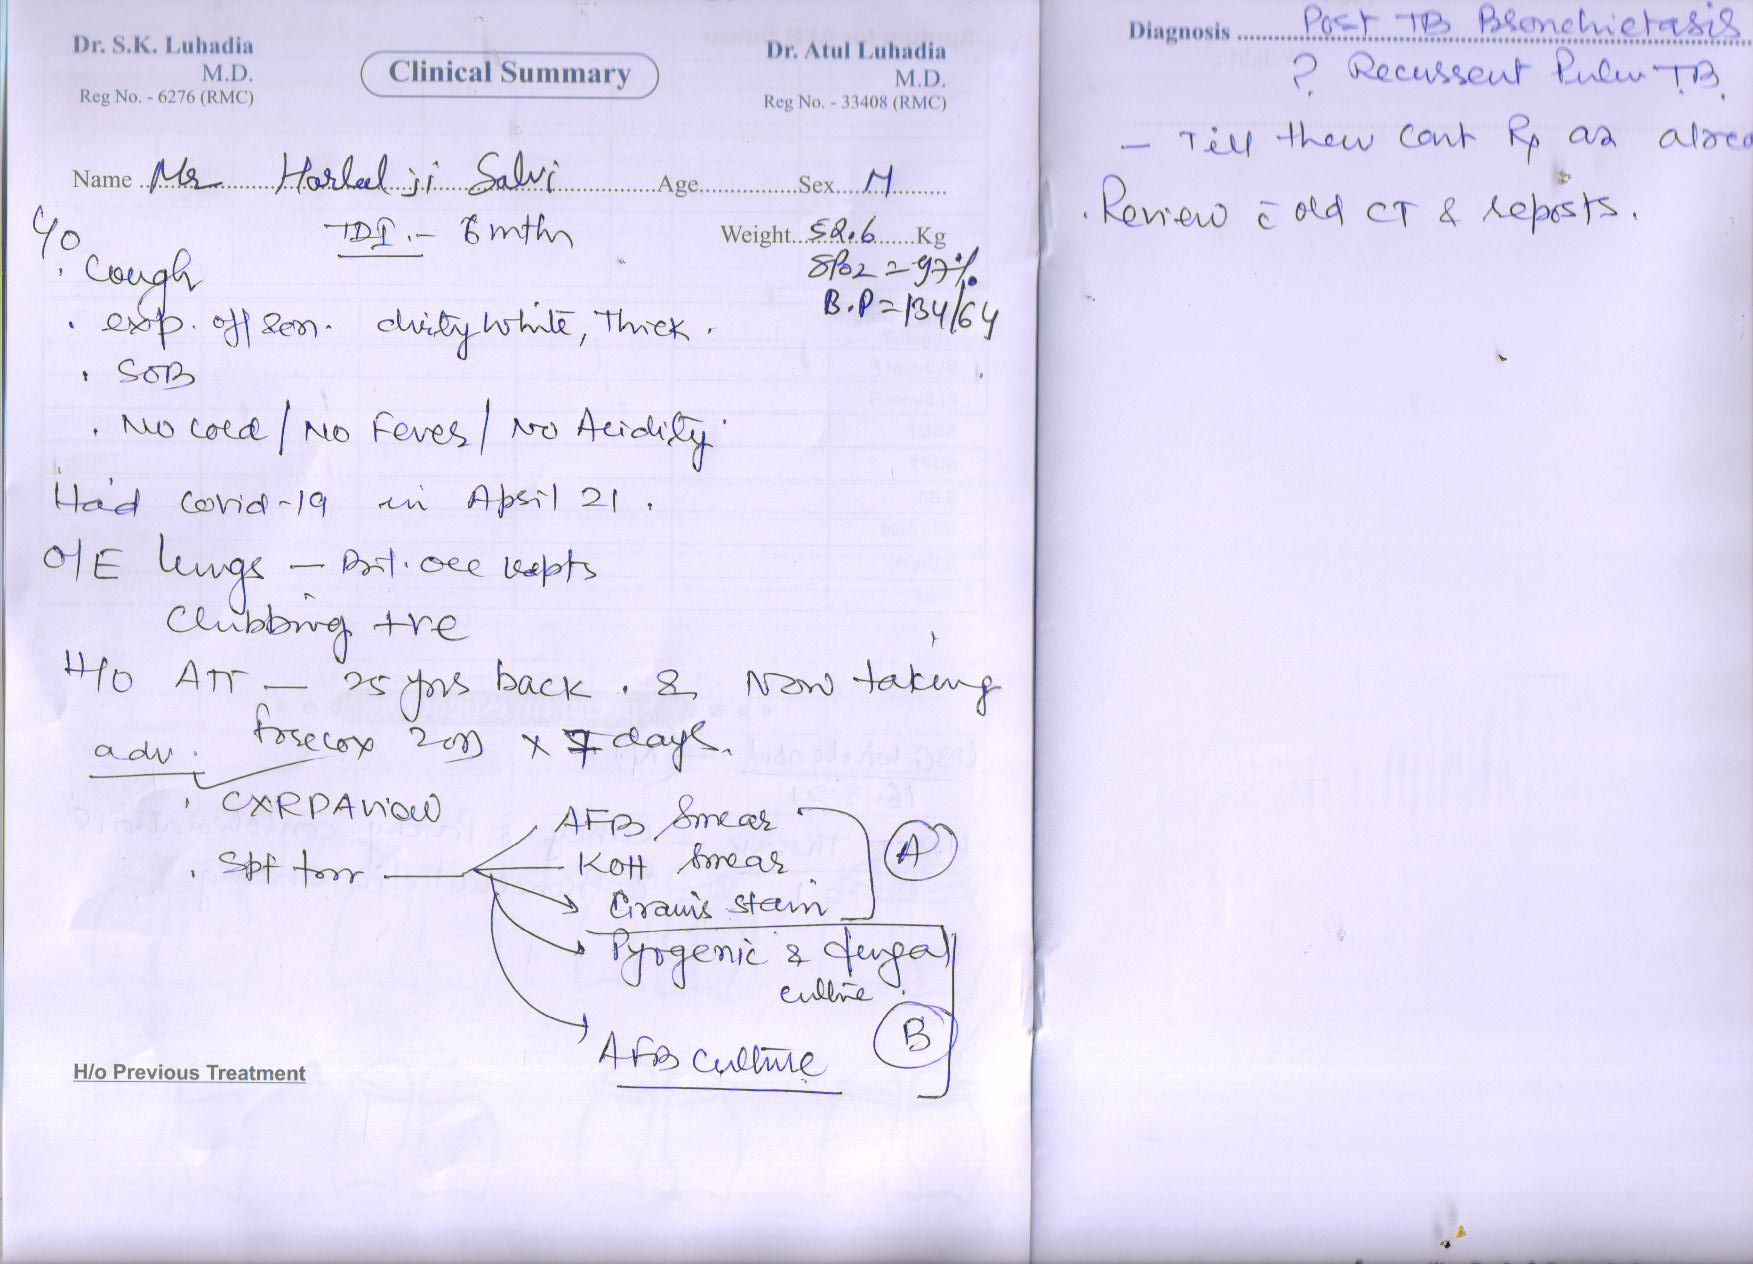 Dr. S.K. Luhadia
M.D.
Reg No. - 6276 (RMC)
Clinical Summary
Dr. Atul Luhadia
M.D.
Reg No. - 33408 (RMC)
Name Mr Harlal ji Salvi Age Sex M
TDI - 6 mths
Weight 52.6 Kg
SPO2 = 97%
B.P = 134/64
C/O
. Cough
. exp. off & on. dirty white, Thick.
. SOB
. No cold / No Fever / No Acidity
Had covid-19 in April 21.
O/E lungs - Bil. occ
Clubbing +ve
H/O ATT - 25 yrs back. & Now taking
forecox 2 OD x 7 days.
adv.
. CXR PA view
. Spt for
AFB Smear
KOH Smear
Gram's stain
A
Pyogenic & fungal
culture.
AFB Culture
B
H/o Previous Treatment
Diagnosis Post TB Bronchietasis
? Recurrent Pulm TB.
- Till then cont Rx as
. Review c̄ old CT & reports.